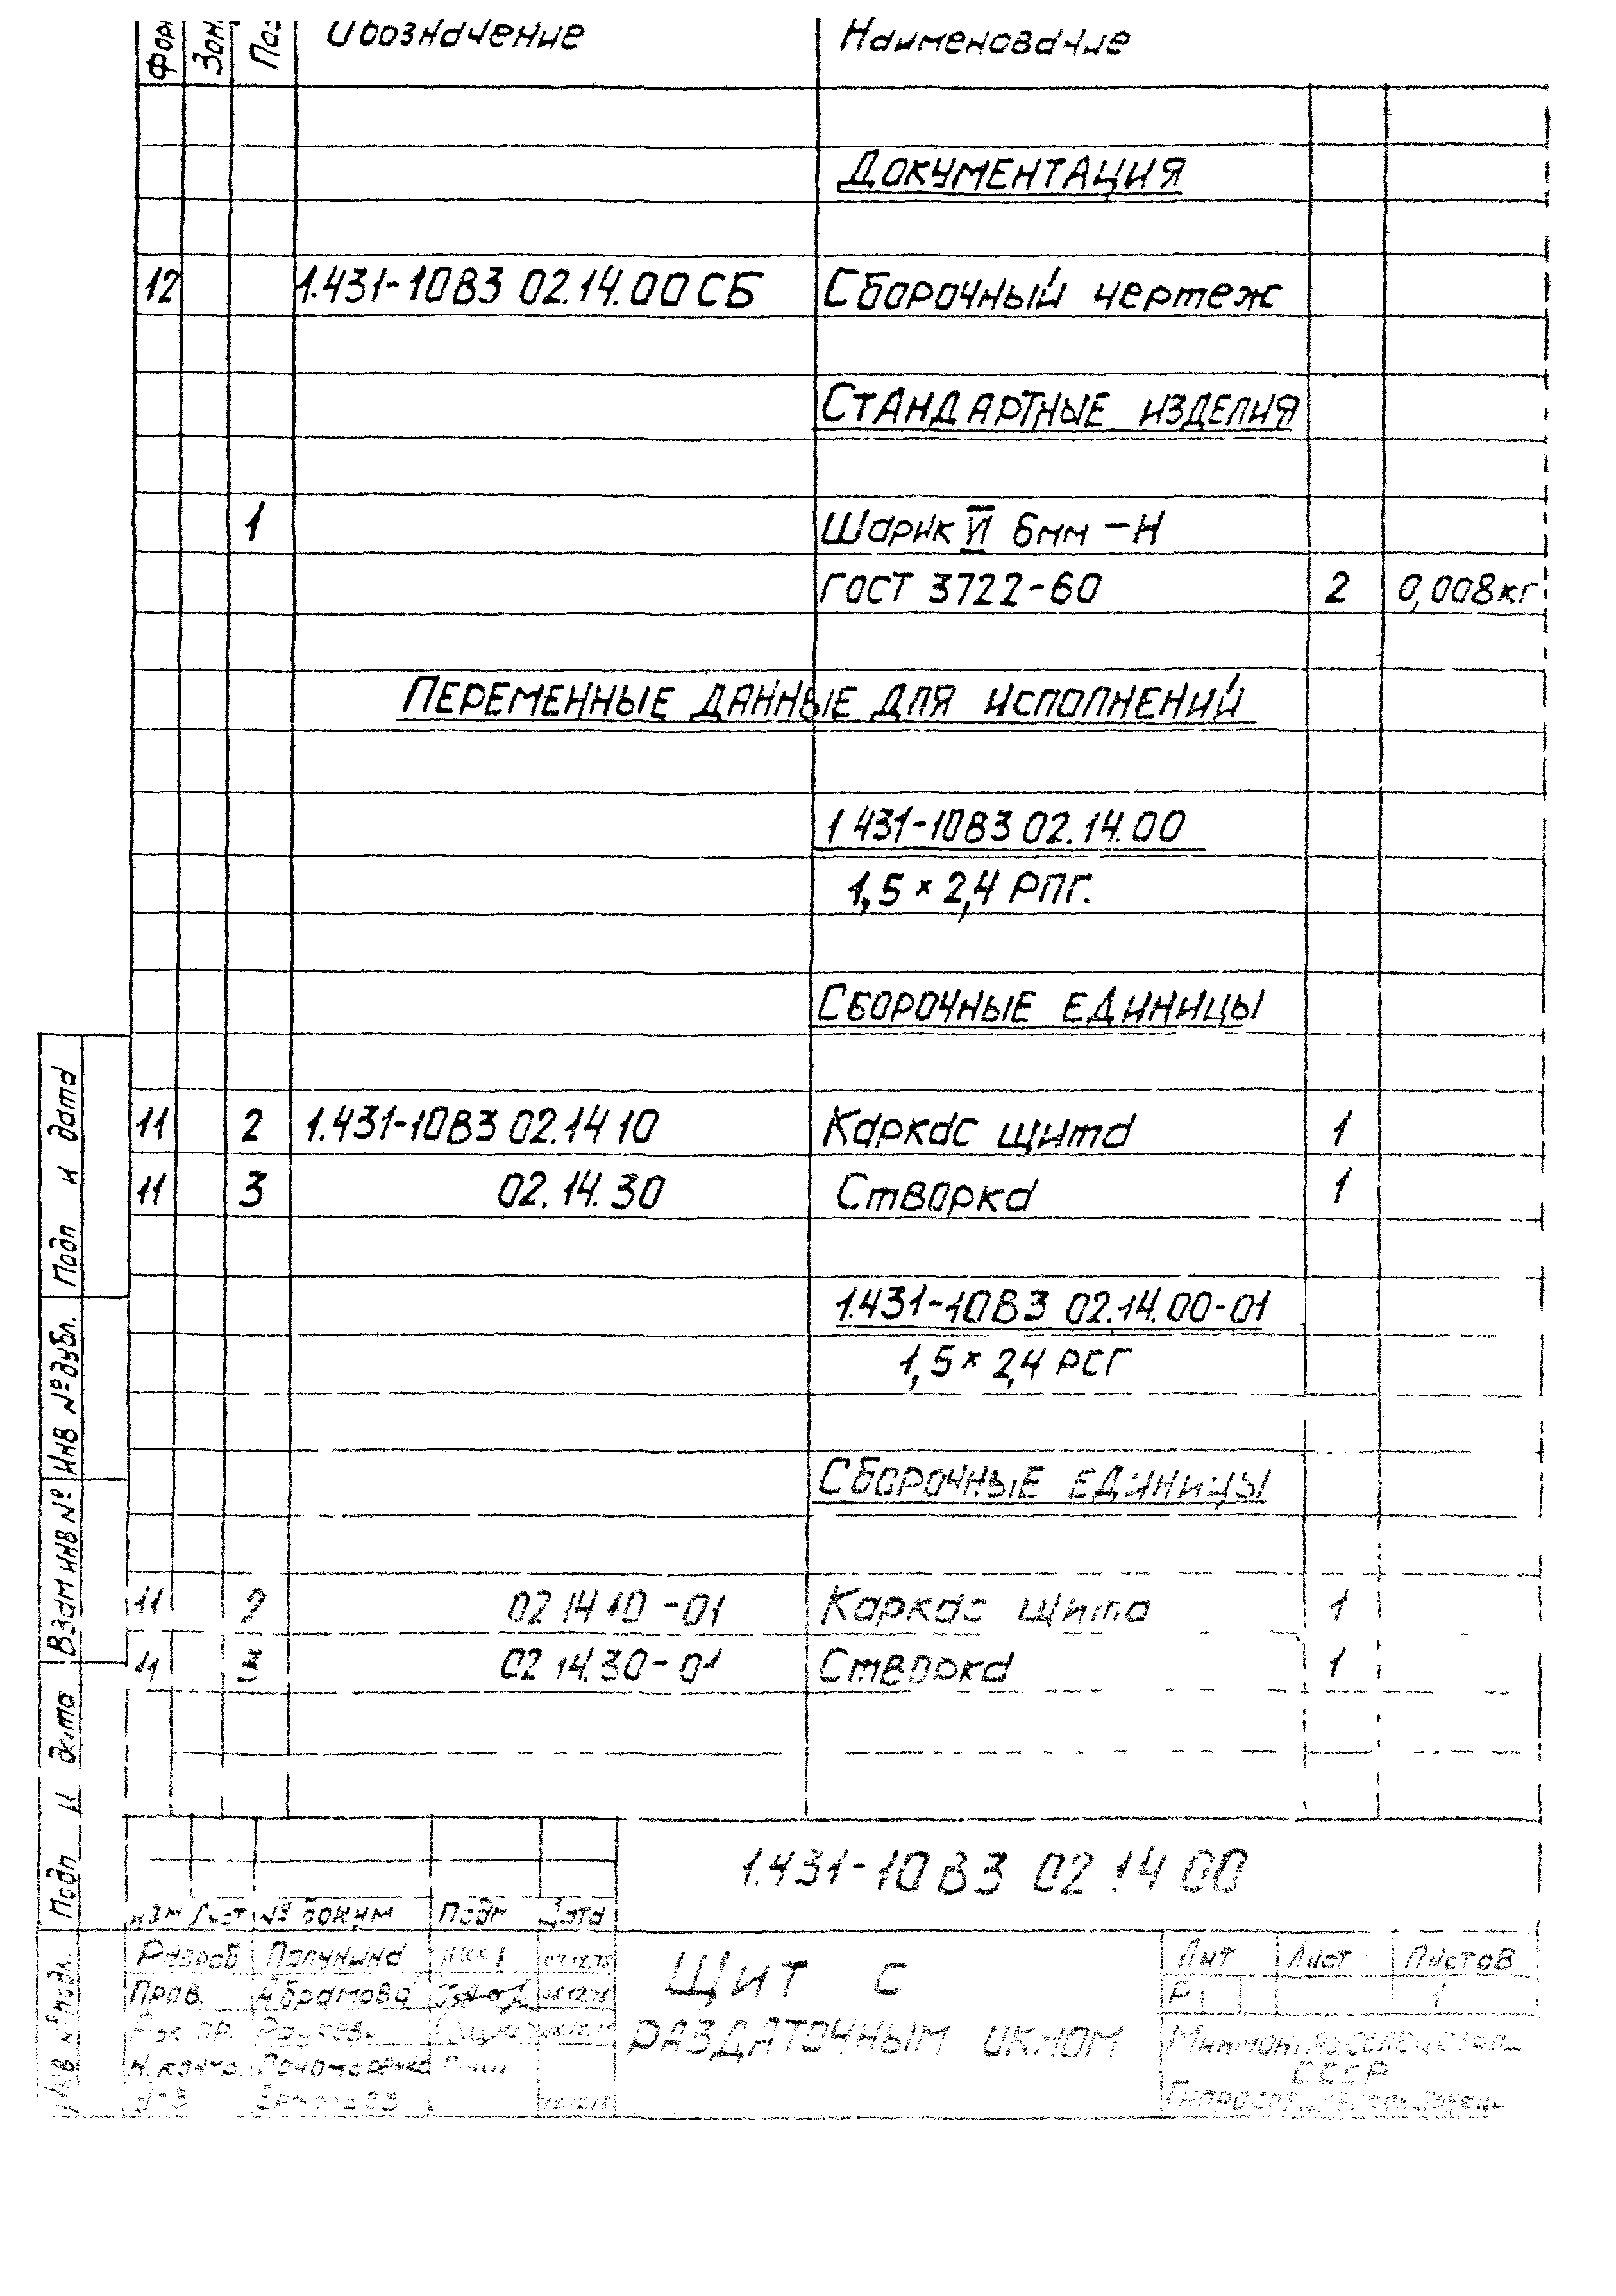 Фор Зон Поз Обозначение Наименование
ДОКУМЕНТАЦИЯ
12 1.431-10В3 02.14.00СБ Сборочный чертеж
СТАНДАРТНЫЕ ИЗДЕЛИЯ
1 Шарик VI 6мм -Н
ГОСТ 3722-60 2 0,008кг
ПЕРЕМЕННЫЕ ДАННЫЕ ДЛЯ ИСПОЛНЕНИЙ
1 431-10В3 02.14.00
1,5 × 2,4 РПГ.
СБОРОЧНЫЕ ЕДИНИЦЫ
11 2 1.431-10В3 02.14 10 Каркас щита 1
11 3 02.14.30 Створка 1
1.431-10В3 02.14.00-01
1,5 × 2,4 РСГ
СБОРОЧНЫЕ ЕДИНИЦЫ
11 2 02 14 10 -01 Каркас щита 1
11 3 02 14.30-01 Створка 1
Подп и дата
Инв № дубл.
Взам инв №
Подп и дата
Инв № подл.
1.431-10В3 02 14 00
Изм Лист № докум Подп Дата
Разраб. Полунина
Пров. Абрамова
Н.контр. Пономаренко
Утв
ЩИТ С
РАЗДАТОЧНЫМ ОКНОМ
Лит Лист Листов
Р 1
СССР